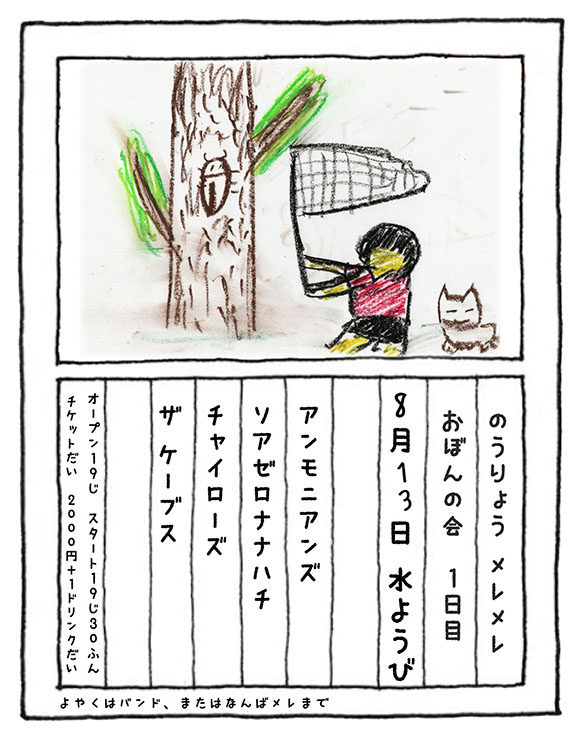 のうりょう メレメレ
おぼんの会 1日目
8月13日 水ようび
アンモニアンズ
ソアゼロナナハチ
チャイローズ
ザ ケーブス
オープン19じ スタート19じ30ふん
チケットだい 2000円+1ドリンクだい
よやくはバンド、またはなんばメレまで